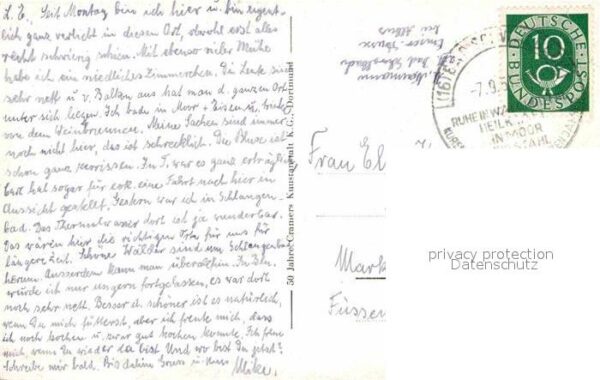 L. E., Seit Montag bin ich hier u. bin eigent-
lich ganz verliebt in diesen Ort, obwohl erst alles
recht schwierig schien. Mit ebenso vieler Mühe
habe ich ein niedliches Zimmerchen. Die Leute sind
sehr nett u. v. Balkon aus hat man d. ganzen Ort
unter sich liegen. Ich bade in Moor + Eisen u. trinke
von dem Weinbrunnen. Meine Sachen sind immer
noch nicht hier, das ist schrecklich. Die Bluse ist
schon ganz zerrissen. In F. war es ganz erträglich,
hat sogar für eine Fahrt nach hier in
Aussicht gestellt. Gestern war ich in Schlangen-
bad. Das Thermalwasser dort ist ja wunderbar.
Das wären hier die richtigen Orte für uns für
längere Zeit. Schöne Wälder sind um Schlangenbad
herum. Ausserdem kann man überall hin. In
würde ich nur ungern fortgelassen, es war dort
noch sehr nett. Besser u. schöner ist es natürlich,
wenn Du mich fütterst, aber ich freute mich, dass
ich noch kochen u. zwar gut kochen konnte. Ich freue
mich, wenn Du wieder da bist. Und wo bist Du jetzt?
Schreibe mir bald. Bis dahin Gruss u. Kuss
Mike.
50 Jahre Cramers Kunstanstalt K.G., Dortmund
Bad Schwalbach
DEUTSCHE
BUNDESPOST
10
(16)
-7.9.5
HEILK
IN MOOR
STAHL
Frau El
Mark
Füssen
privacy protection
Datenschutz